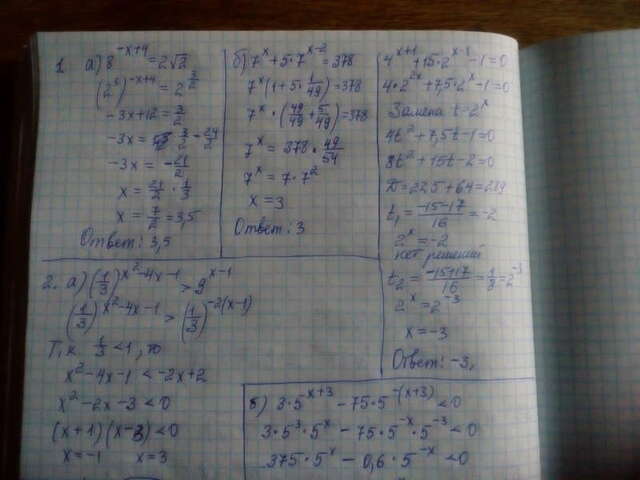 1. а) 8^(-x+4) = 2√2
(2³)^(-x+4) = 2^(3/2)
-3x+12 = 3/2
-3x = 3/2 - 24/2
-3x = -21/2
x = 21/2 · 1/3
x = 7/2 = 3,5
Ответ: 3,5
б) 7^x + 5·7^(x-2) = 378
7^x (1 + 5·1/49) = 378
7^x · (49/49 + 5/49) = 378
7^x = 378 · 49/54
7^x = 7·7²
x = 3
Ответ: 3
4^(x+1) + 15·2^(x-1) - 1 = 0
4·2^(2x) + 7,5·2^x - 1 = 0
Замена t = 2^x
4t² + 7,5t - 1 = 0
8t² + 15t - 2 = 0
D = 225 + 64 = 289
t₁ = (-15-17)/16 = -2
2^x = -2
нет решений
t₂ = (-15+17)/16 = 1/8 = 2^(-3)
2^x = 2^(-3)
x = -3
Ответ: -3,
2. а) (1/3)^(x²-4x-1) > 9^(x-1)
(1/3)^(x²-4x-1) > (1/3)^(-2(x-1))
Т.к. 1/3 < 1, то
x² - 4x - 1 < -2x + 2
x² - 2x - 3 < 0
(x+1)(x-3) < 0
x = -1 x = 3
б) 3·5^(x+3) - 75·5^(-(x+3)) < 0
3·5³·5^x - 75·5^(-x)·5^(-3) < 0
375·5^x - 0,6·5^(-x) < 0